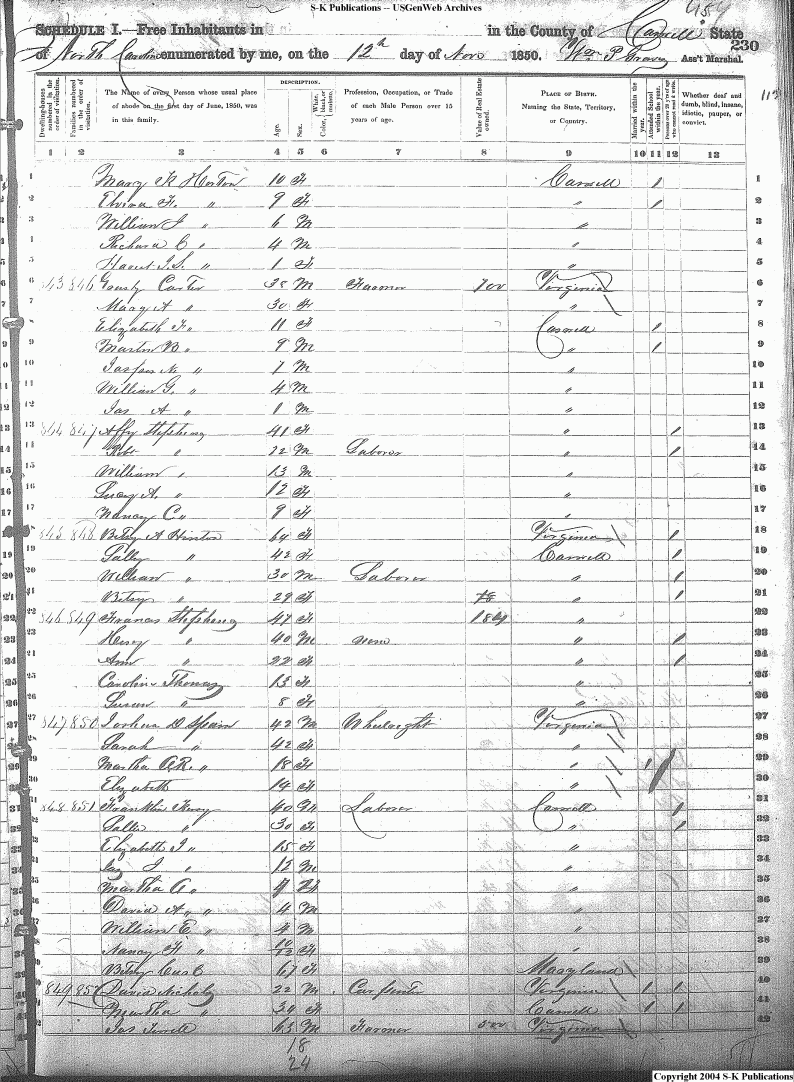 S-K Publications -- USGenWeb Archives
SCHEDULE I.—Free Inhabitants in in the County of Caswell State
of North Carolina enumerated by me, on the 12th day of Nov 1850. Wm P Graves Ass't Marshal.
230
Dwelling-houses numbered in the order of visitation.
Families numbered in the order of visitation.
The Name of every Person whose usual place of abode on the first day of June, 1850, was in this family.
DESCRIPTION.
Age.
Sex.
Color, White, black, or mulatto.
Profession, Occupation, or Trade of each Male Person over 15 years of age.
Value of Real Estate owned.
PLACE OF BIRTH. Naming the State, Territory, or Country.
Married within the year.
Attended School within the year.
Persons over 20 y'rs of age who cannot read & write.
Whether deaf and dumb, blind, insane, idiotic, pauper, or convict.
1 2 3 4 5 6 7 8 9 10 11 12 13
1 Mary K Horton 10 F Caswell / 1
2 F. " 9 F " / 2
3 William J " 6 M " 3
4 Richard C " 4 M " 4
5 " 1 F " 5
6 843 846 Carter 38 M Farmer 700 Virginia 6
7 Mary A " 30 F " 7
8 Elizabeth F. " 11 F Caswell / 8
9 Martin B " 9 M " / 9
10 Jasper N. " 7 M " 10
11 William G. " 4 M " 11
12 Jas A " 1 M " 12
13 844 847 Affy Stephens 41 F " / 13
14 Robt " 22 M Laborer " / 14
15 William " 13 M " 15
16 Lucy A. " 12 F " 16
17 Nancy C " 9 F " 17
18 845 848 Betsy A Hinton 64 F Virginia / 18
19 Sally " 42 F Caswell / 19
20 William " 30 M Laborer " / 20
21 Betsy " 29 F " / 21
22 846 849 Frances Stephens 47 F " 22
23 Henry " 40 M none " / 23
24 Ann " 22 F " / 24
25 Caroline Thomas 13 F " 25
26 Susan " 8 F " 26
27 847 850 Joshua D Spain 42 M Wheelright Virginia 27
28 Sarah " 42 F " 28
29 Martha A.R. " 18 F " / 29
30 Elizabeth 14 F " / 30
31 848 851 Franklin 40 M Laborer Caswell / 31
32 Sallie " 30 F " / 32
33 Elizabeth J " 15 F " 33
34 Jas J " 12 M " 34
35 Martha A " F " 35
36 David A " " 4 M " 36
37 William E " 4 M " 37
38 Nancy F. " 10/12 F " 38
39 Betsy 67 F Maryland 39
40 849 852 David Nichols 22 M Carpenter Virginia / / 40
41 Martha " 30 F Caswell / / 41
42 Jas Terrell 63 M Farmer 500 Virginia 42
18
24
Copyright 2004 S-K Publications